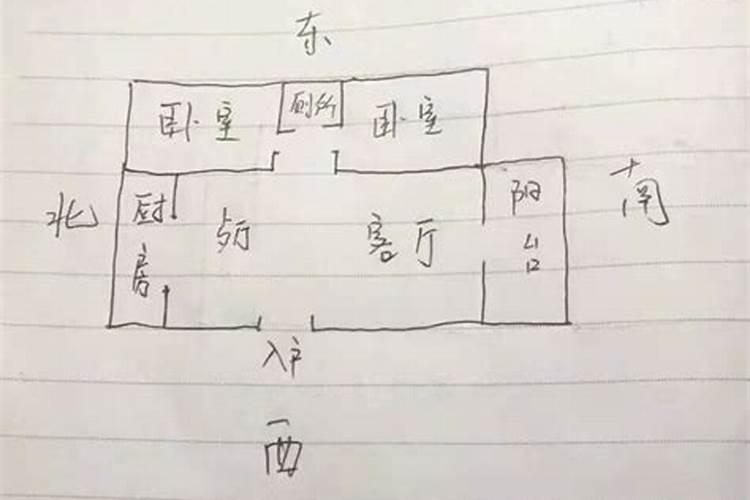 东
卧室 厕所 卧室
北
厨房
歺厅
客厅
阳台
南
入户
西